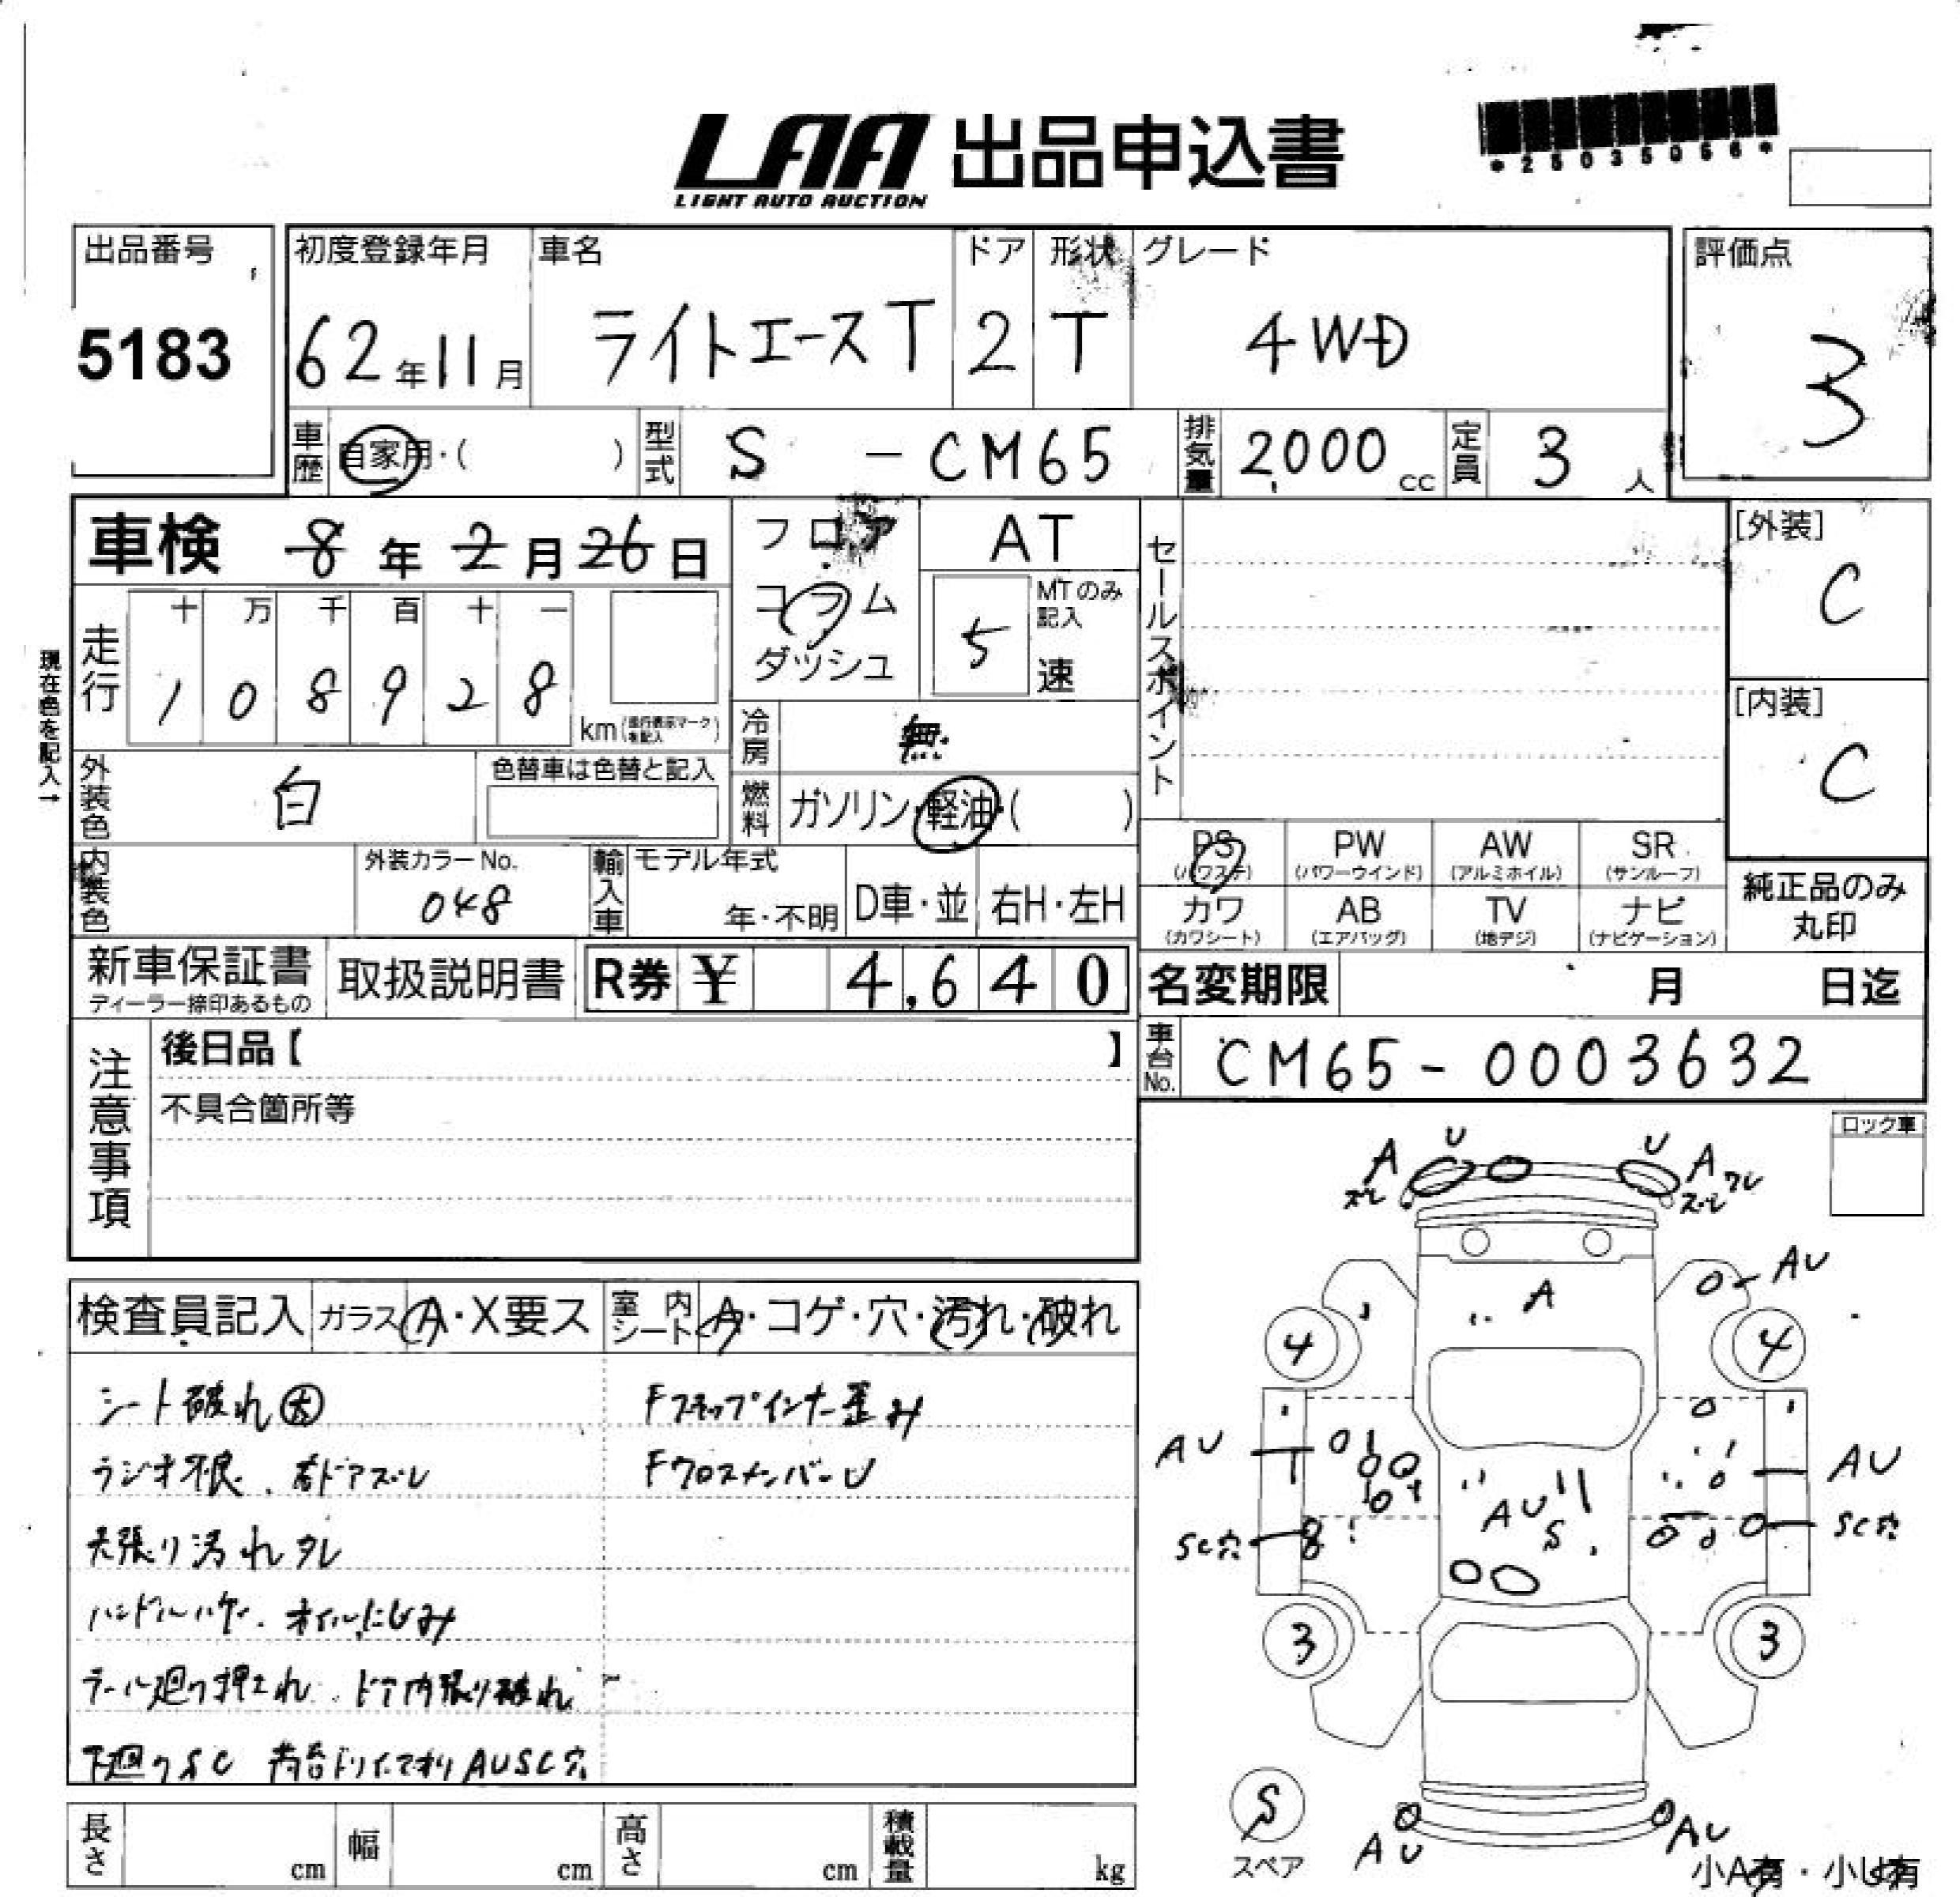 LAA 出品申込書
LIGHT AUTO AUCTION
*25035056*
出品番号
5183
初度登録年月
62年11月
車名
ライトエースT
ドア
2
形状
T
グレード
4WD
評価点
3
車歴 自家用・( )
型式 S - CM65
排気量 2000 cc
定員 3 人
車検 8年2月26日
フロア
コラム
ダッシュ
AT
5 MTのみ記入
速
セールスポイント
[外装]
C
[内装]
C
現在色を記入→
走行
十 万 千 百 十 一
1 0 8 9 2 8 km
冷房 無
外装色 白
色替車は色替と記入
燃料 ガソリン・軽油・( )
内装色
外装カラーNo.
048
輸入車
モデル年式
年・不明
D車・並
右H・左H
PS
(パワステ)
PW
(パワーウインド)
AW
(アルミホイル)
SR
(サンルーフ)
カワ
(カワシート)
AB
(エアバッグ)
TV
(地デジ)
ナビ
(ナビゲーション)
純正品のみ
丸印
新車保証書
ディーラー捺印あるもの
取扱説明書
R券 ¥ 4,640
名変期限 月 日迄
車台No. CM65-0003632
注意事項
後日品【 】
不具合箇所等
ロック車
検査員記入
ガラス A・X要ス
室内シート A・コゲ・穴・汚れ・破れ
シート破れ大
ラジオ不良、右ドアズレ
天張り汚れタレ
ハンドルハゲ、オイルにじみ
下廻りSC 荷台 アオリ AUSC穴
ドア内張り破れ
Fステップインナー歪み
FクロスメンバーU
U U
A A
ズレ ズレ ワレ
AU
A
4 4
AU AU
AU
S
SC穴 SC穴
3 3
S
スペア
AU AU
小A有・小U有
長さ cm
幅 cm
高さ cm
積載量 kg